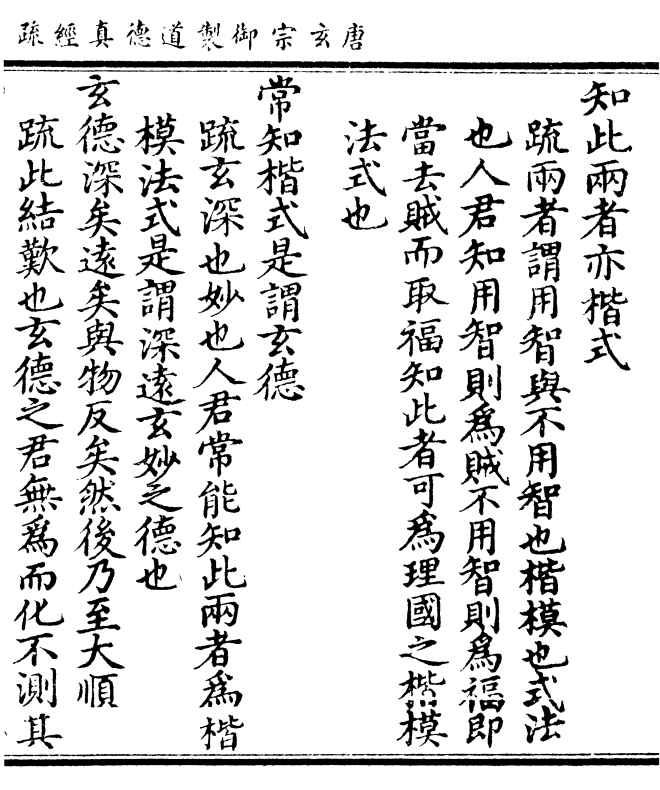 唐玄宗御製道德真經疏
知此兩者亦楷式
疏兩者謂用智與不用智也楷模也式法
也人君知用智則為賊不用智則為福即
當去賊而取福知此者可為理國之楷模
法式也
常知楷式是謂玄德
疏玄深也妙也人君常能知此兩者為楷
模法式是謂深遠玄妙之德也
玄德深矣遠矣與物反矣然後乃至大順
疏此結歎也玄德之君無為而化不測其